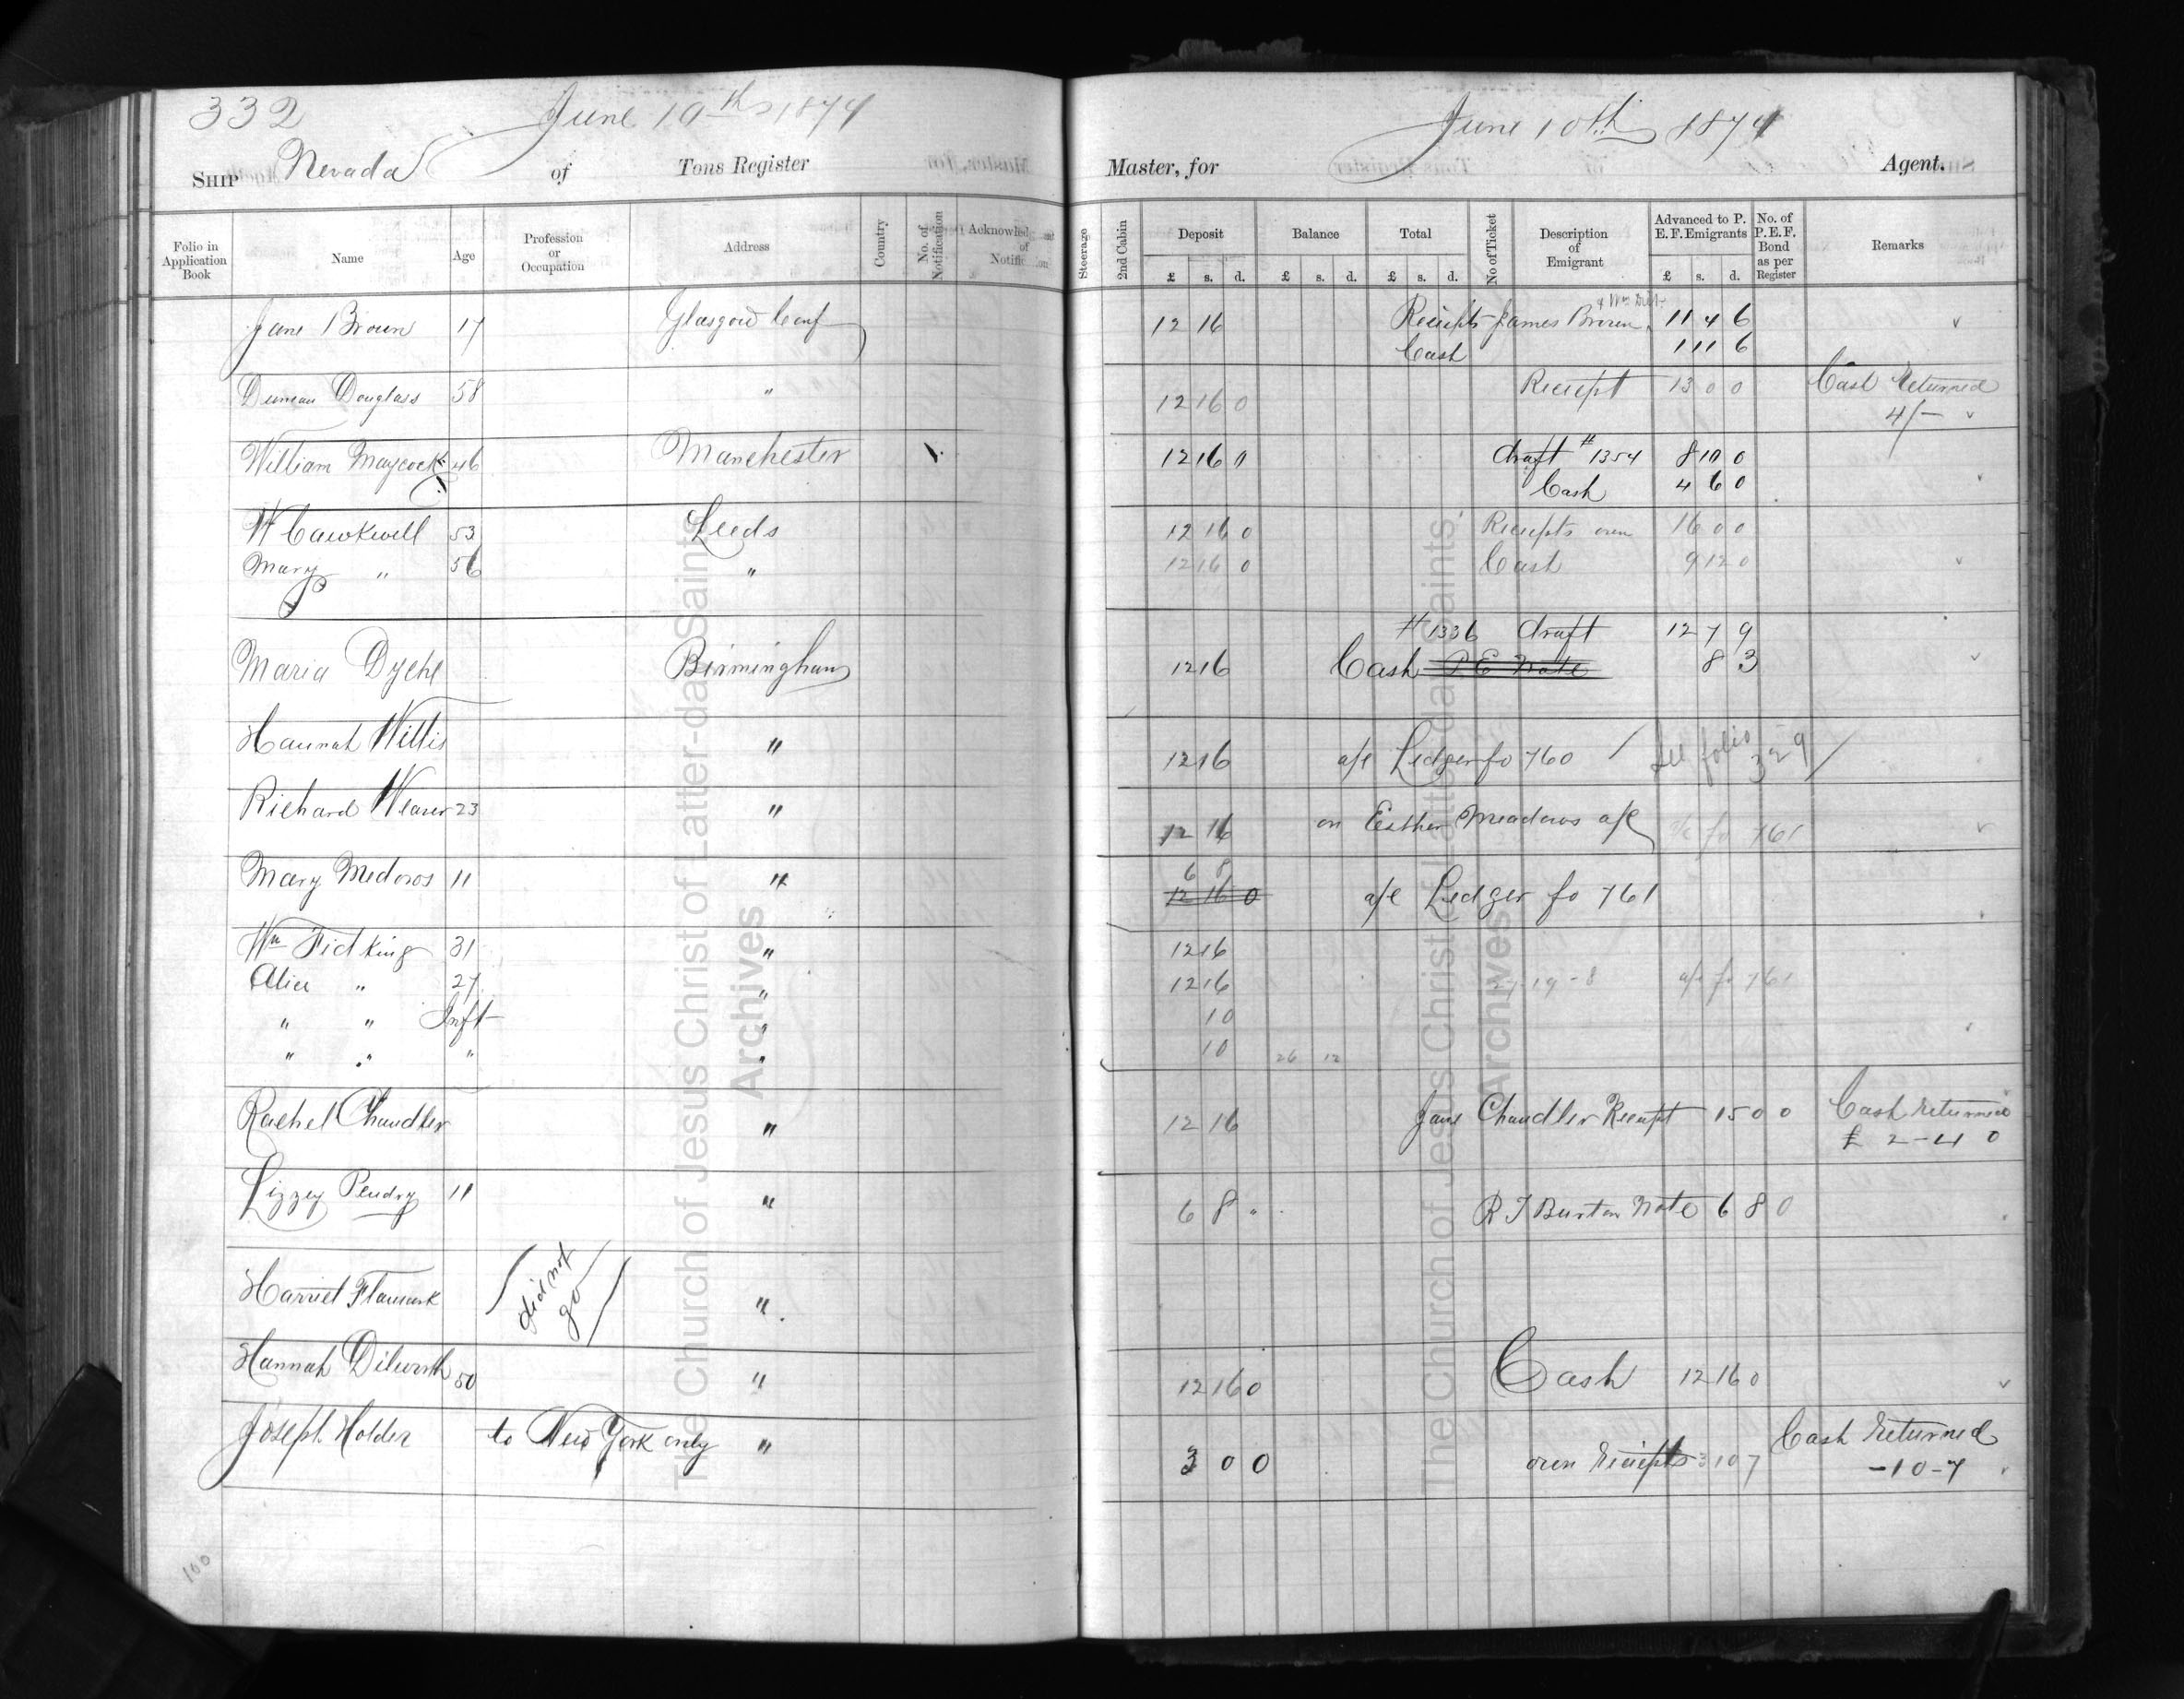 332 June 10th 1874
Ship Nevada of Tons Register
Folio in Application Book Name Age Profession or Occupation Address Country No. of Notification Acknowled of Notific
Jane Brown 17 Glasgow Conf
Duncan Douglass 58 "
William Maycock 46 Manchester
W Cawkwell 53 Leeds
Mary " 56 "
Maria Dyche Birmingham
Hannah Willis "
Richard Weaver 23 "
Mary Medows 11 "
Wm Fidking 31 "
Alice " 27 "
" " Inft "
" " " "
Rachel Chandler "
Lizzey Pendry 11 "
Harriet did not go "
Hannah Dilworth 50 "
Joseph Holder to New York only "
100
June 10th 1874
Master, for Agent.
Steerage 2nd Cabin Deposit £ s. d. Balance £ s. d. Total £ s. d. No of Ticket Description of Emigrant Advanced to P. E. F. Emigrants £ s. d. No. of P. E. F. Bond as per Register Remarks
12 16 Reciepts James Brown 11 4 6
Cash 1 11 6
12 16 0 Reciept 13 0 0 Cash Returned 4/-
12 16 0 draft # 1354 8 10 0
Cash 4 6 0
12 16 0 Reciepts own 16 0 0
12 16 0 Cash 9 12 0
# 1336 draft 12 7 9
12 16 Cash P E Note 8 3
12 16 a/c Ledger fo 760 See folio 329
12 16 on Esther Meadows a/c a/c fo 761
6 8
12 16 0 a/c Ledger fo 761
12 16
12 16 27-19-8 a/c fo 761
10
10 26 12
12 16 Jane Chandler Reciept 15 0 0 Cash returned
£ 2-4 0
6 8 " R T Burton Note 6 8 0
12 16 0 Cash 12 16 0
3 0 0 own Reciepts 3 10 7 Cash Returned
-10-7
The Church of Jesus Christ of Latter-da Saints
Archives
The Church of Jesus Christ of Latter-da Saints.
Archives